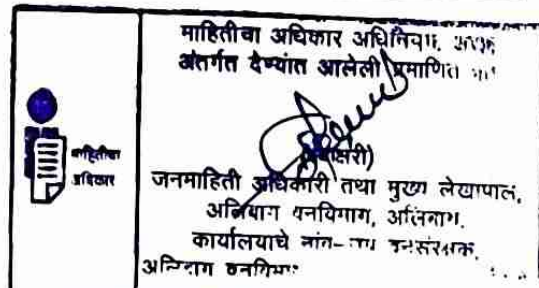 माहितीचा अधिकार अधिनियम,
अंतर्गत देण्यांत आलेली प्रमाणित
माहितीचा
अधिकार
जनमाहिती अधिकारी तथा मुख्य लेखापाल,
अलिबाग वनविभाग, अलिबाग.
कार्यालयाचे नांव- वनसंरक्षक,
अलिबाग वनविभाग